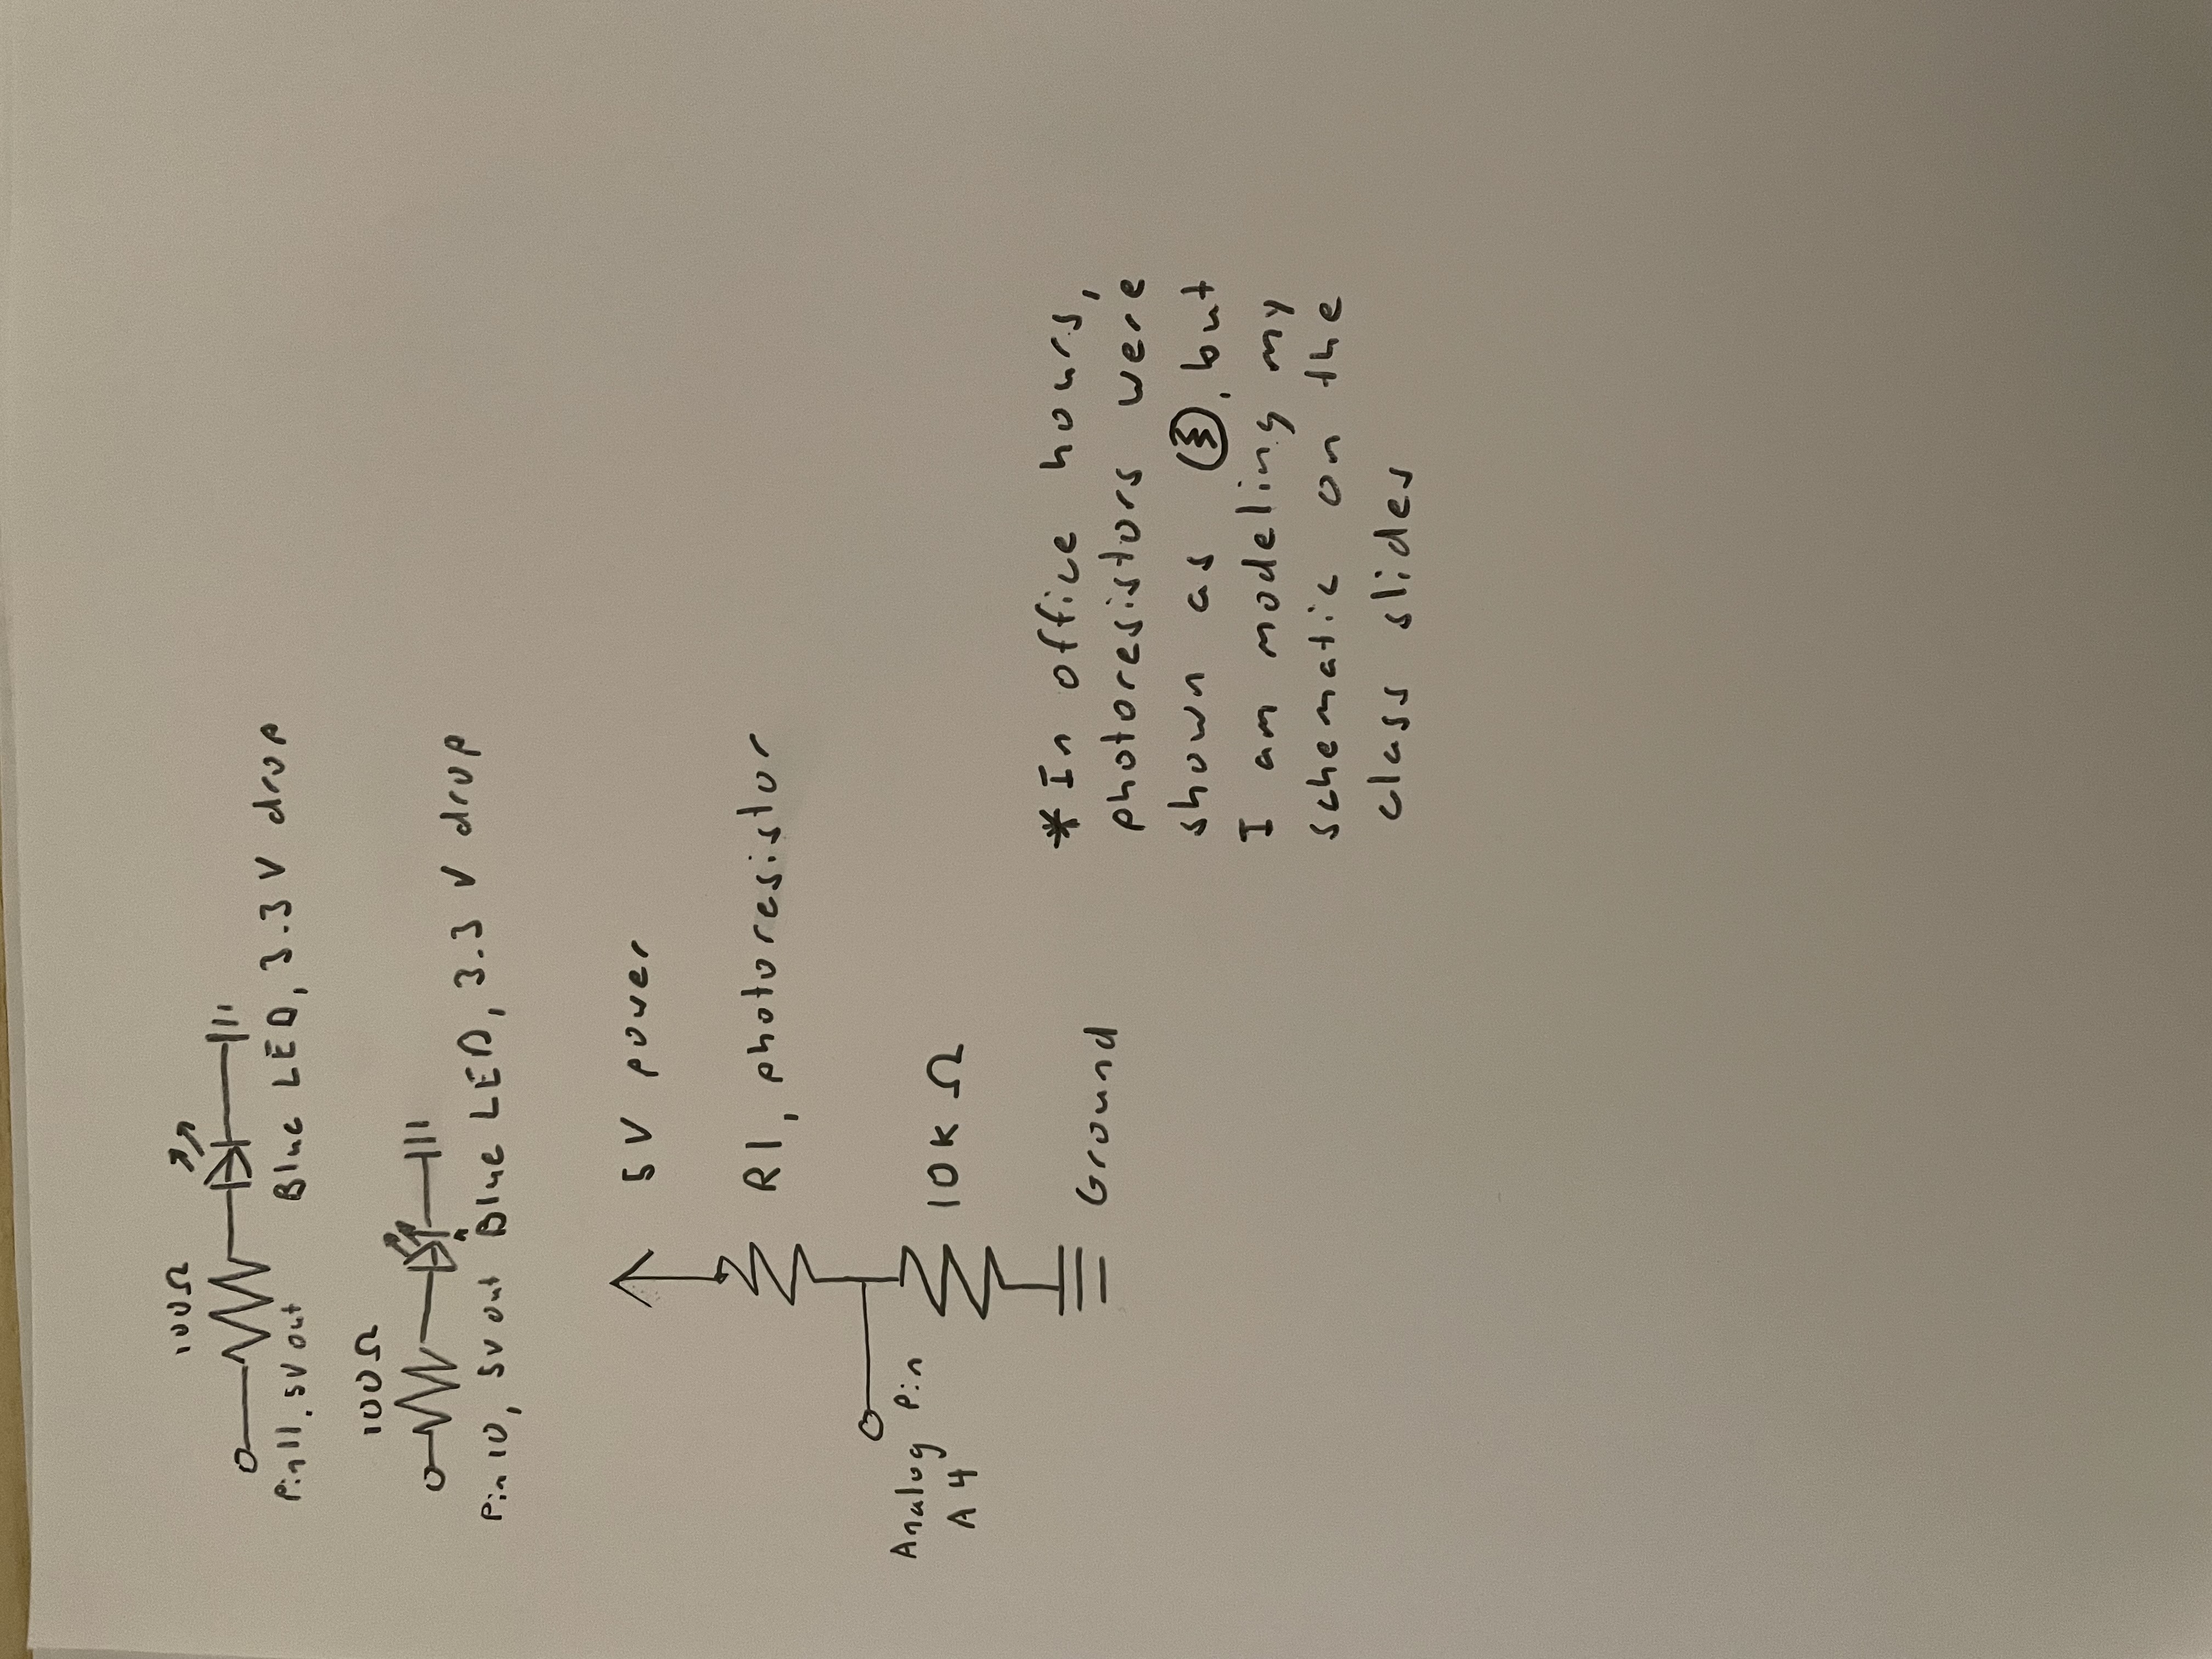 100Ω
Pin 11, 5V out Blue LED, 3.3 V drop
100Ω
Pin 10, 5V out Blue LED, 3.3 V drop
5V power
R1, photoresistor
Analog Pin
A4
10K Ω
Ground
*In office hours,
photoresistors were
shown as , but
I am modeling my
schematic on the
class slides